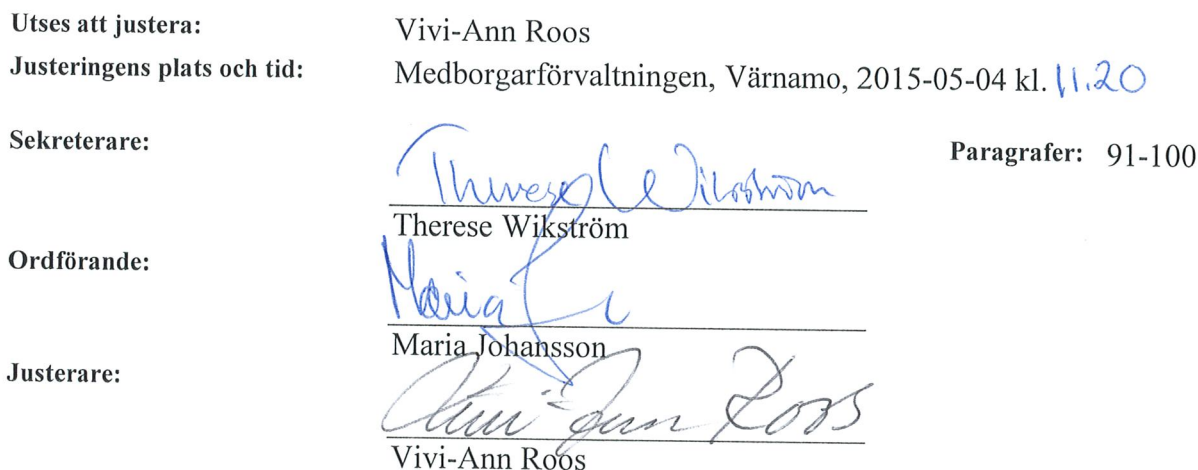 Utses att justera: Vivi-Ann Roos
Justeringens plats och tid: Medborgarförvaltningen, Värnamo, 2015-05-04 kl. 11.20
Sekreterare: Therese Wikström Paragrafer: 91-100
Therese Wikström
Ordförande: Maria
Maria Johansson
Justerare: Vivi-Ann Roos
Vivi-Ann Roos